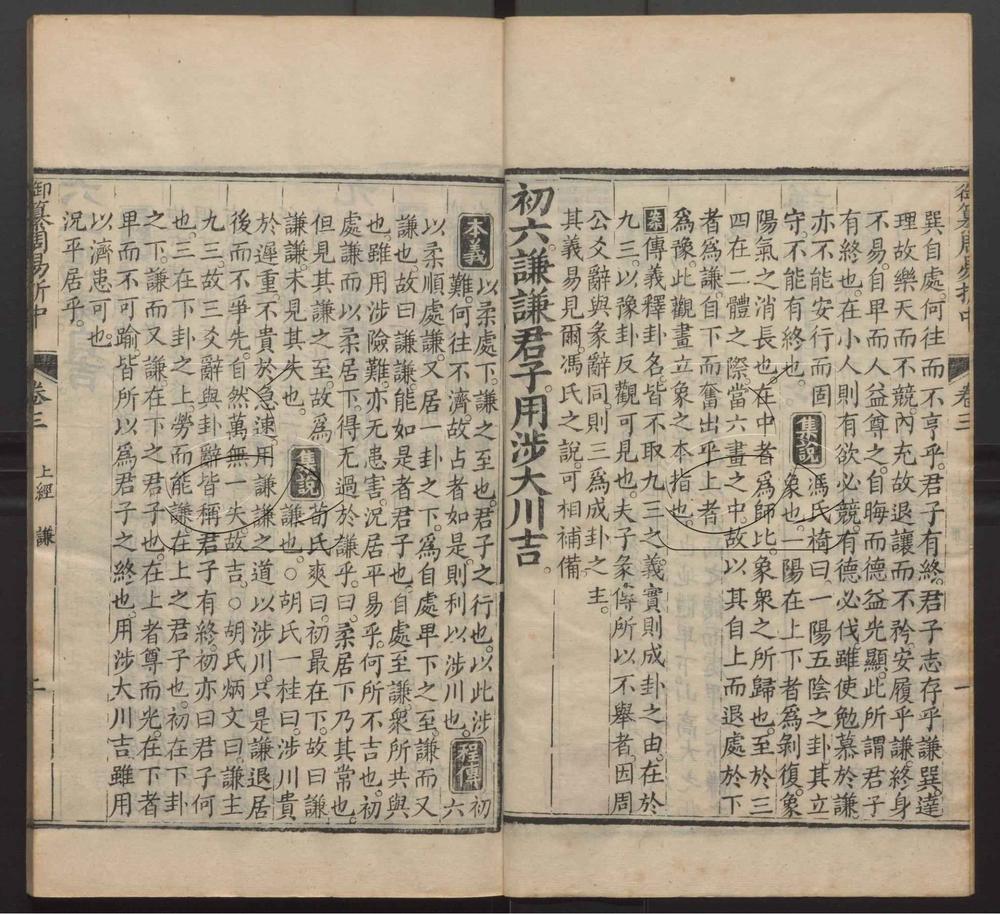 御纂周易折中
卷三
一
巽自處何往而不亨乎君子有終君子志存乎謙巽達
理故樂天而不競內充故退讓而不矜安履乎謙終身
不易自卑而人益尊之自晦而德益光顯此所謂君子
有終也在小人則有欲必競有德必伐雖使勉慕於謙
亦不能安行而固
守不能有終也 集說 馮氏椅曰一陽五陰之卦其立
象也一陽在上下者爲剝復象
陽氣之消長也在中者爲師比象衆之所歸也至於三
四在二體之際當六畫之中故以其自上而退處於下
者爲謙自下而奮出乎上者
爲豫此觀畫立象之本指也
案 傳義釋卦名皆不取九三之義實則成卦之由在於
九三以豫卦反觀可見也夫子彖傳所以不舉者因周
公爻辭與彖辭同則三爲成卦之主
其義易見爾馮氏之說可相補備
初六謙謙君子用涉大川吉
本義 以柔處下謙之至也君子之行也以此涉
難何往不濟故占者如是則利以涉川也 程傳 初
六
以柔順處謙又居一卦之下爲自處卑下之至謙而又
謙也故曰謙謙能如是者君子也自處至謙衆所共與
也雖用涉險難亦无患害況居平易乎何所不吉也初
處謙而以柔居下得无過於謙乎曰柔居下乃其常也
但見其謙之至故爲
謙謙未見其失也 集說 荀氏爽曰初最在下故曰謙
謙也○胡氏一桂曰涉川貴
於遲重不貴於急速用謙謙之道以涉川只是謙退居
後而不爭先自然萬無一失故吉○胡氏炳文曰謙主
九三故三爻辭與卦辭皆稱君子有終初亦曰君子何
也三在下卦之上勞而能謙在上之君子也初在下卦
之下謙而又謙在下之君子也在上者尊而光在下者
卑而不可踰皆所以爲君子之終也用涉大川吉雖用
以濟患可也
況平居乎
御纂周易折中
卷三
上經 謙
二